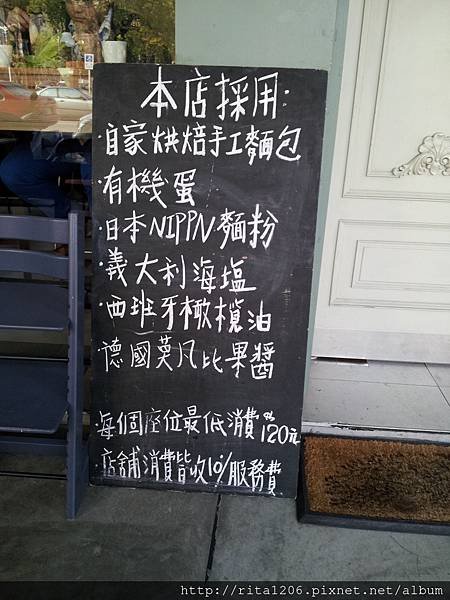 本店採用:
·自家烘焙手工麵包
·有機蛋
·日本NIPPN麵粉
·義大利海塩
·西班牙橄欖油
·德國莫凡比果醬
·每個座位最低消費$120元
·店舖消費皆收10%服務費
http://rita1206.pixnet.net/album